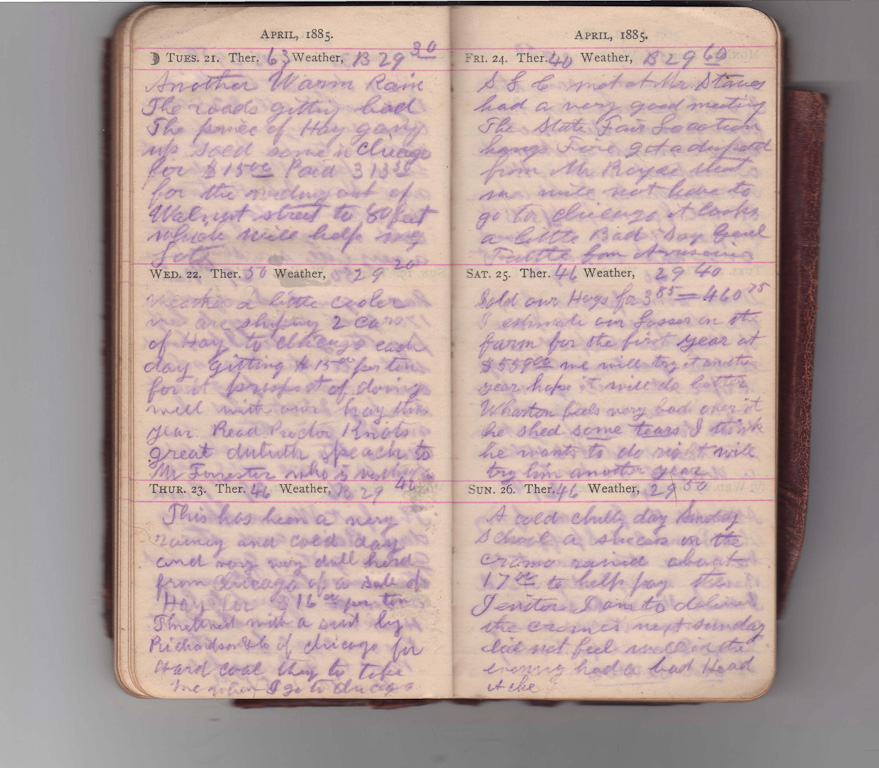 APRIL, 1885.
TUES. 21. Ther. 63 Weather, B 29 30
Another Warm Rain
The roads gitting bad
The price of Hay going
up sold some in Chicago
for $15 00 Paid 313
for the widing out of
Walnut street to 80 feet
which will help my
Lots
WED. 22. Ther. 50 Weather, 29 20
weather a little cooler
we are shiping 2 cars
of Hay to Chicago each
day gitting $15 00 per ton
for it prospect of doing
well with our hay this
year. Read Proctor Knots
great duluth speach to
Mr Forrester who is
THUR. 23. Ther. 46 Weather, B 29 40
This has been a very
rainey and cold day
and very very dull herd
from Chicago of a sale of
Hay for $16 00 per ton
Thretened with a suit by
Richardson & Co of chicago for
Hard coal they to take
I go to chicago
APRIL, 1885.
FRI. 24. Ther. 40 Weather, B 29 60
S S C met at Mr
had a very good meeting
The State Fair Location
hangs Fire got a dispatch
from Mr
we will not have to
go to chicago it looks
a little Bad Say Genl
Tuttle
SAT. 25. Ther. 46 Weather, 29 40
Sold our Hogs for 3 85 = 460 75
I estimate our Losses on the
farm for the first year at
$559 00 we will try it another
year hope it will do better
Wharton feels very bad over it
he shed some tears I think
he wants to do right will
try him another year
SUN. 26. Ther. 46 Weather, 29 50
A cold chilly day Sunday
School a sucess on the
cramo raised about
17 00 to help pay the
Jenitor I am to deliver
the cramo next sunday
did not feel well in the
evening had a bad Head
Ache